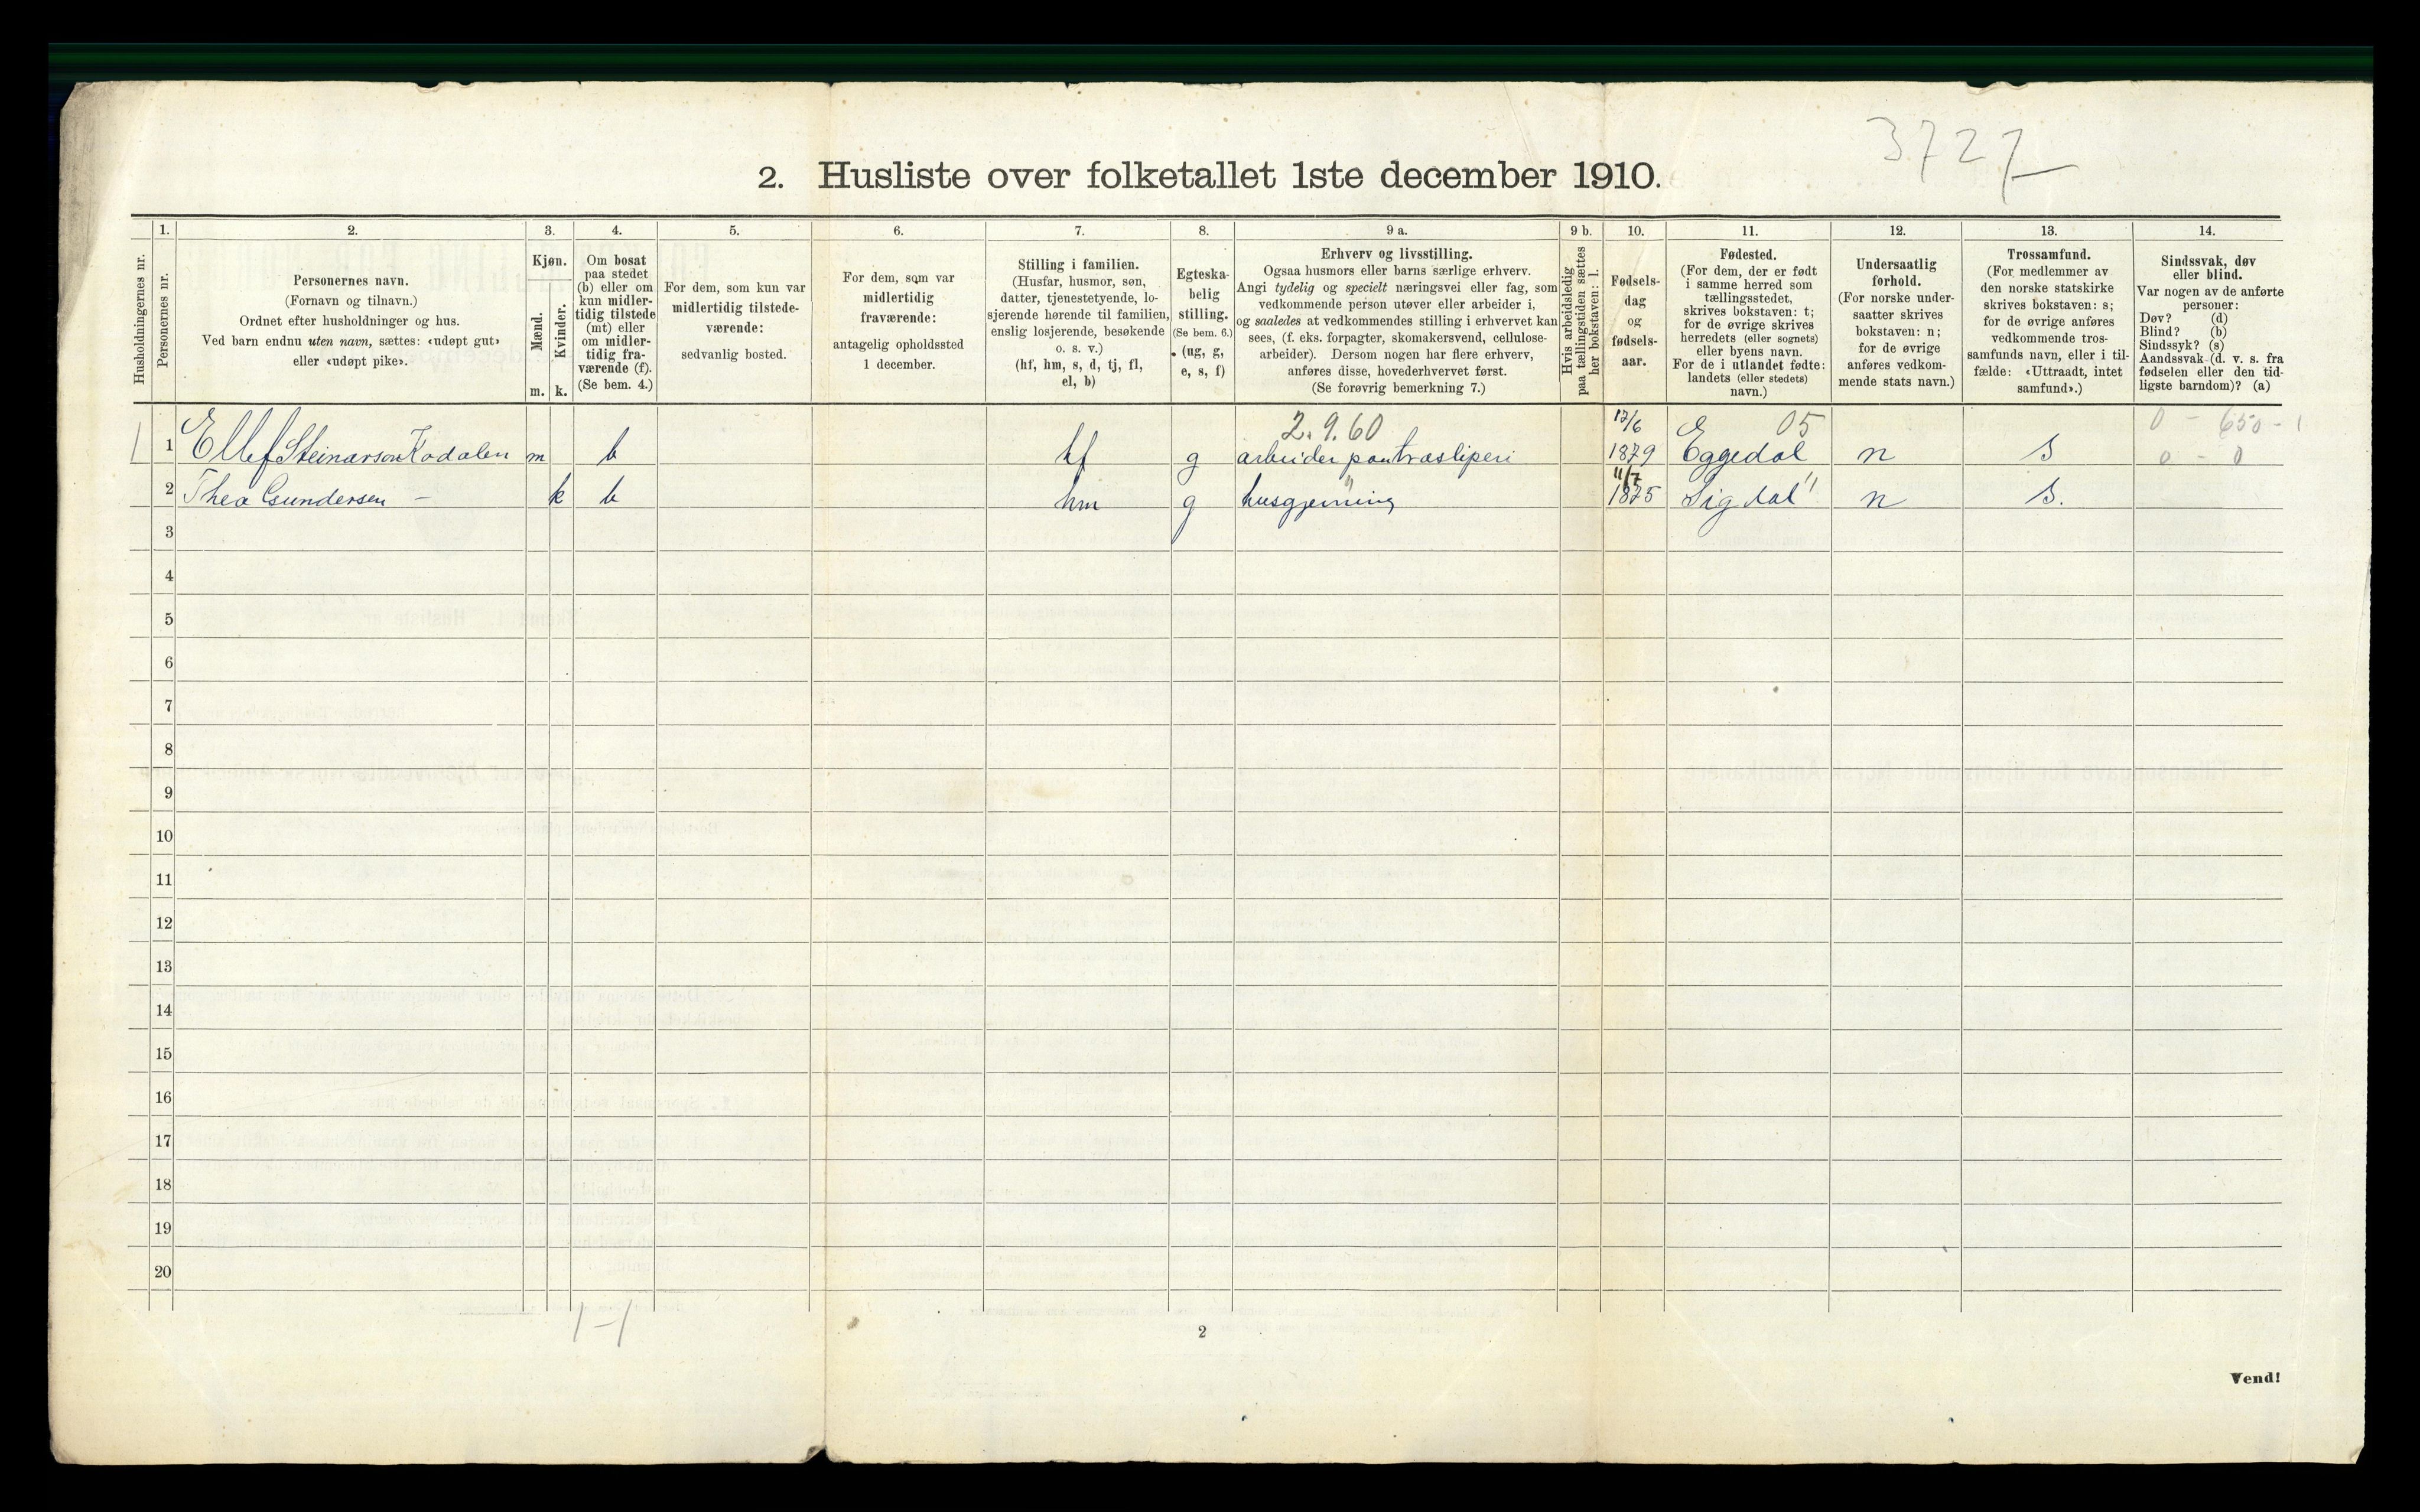 3727
2. Husliste over folketallet 1ste december 1910.
Husholdningernes nr.
1.
Personernes nr.
2.
Personernes navn.
(Fornavn og tilnavn.)
Ordnet efter husholdninger og hus.
Ved barn endnu uten navn, sættes: «udøpt gut»
eller «udøpt pike».
3.
Kjøn.
Mænd.
Kvinder.
m. k.
4.
Om bosat
paa stedet
(b) eller om
kun midler-
tidig tilstede
(mt) eller
om midler-
tidig fra-
værende (f).
(Se bem. 4.)
5.
For dem, som kun var
midlertidig tilstede-
værende:
sedvanlig bosted.
6.
For dem, som var
midlertidig
fraværende:
antagelig opholdssted
1 december.
7.
Stilling i familien.
(Husfar, husmor, søn,
datter, tjenestetyende, lo-
sjerende hørende til familien,
enslig losjerende, besøkende
o. s. v.)
(hf, hm, s, d, tj, fl,
el, b)
8.
Egteska-
belig
stilling.
(Se bem. 6.)
(ug, g,
e, s, f)
9 a.
Erhverv og livsstilling.
Ogsaa husmors eller barns særlige erhverv.
Angi tydelig og specielt næringsvei eller fag, som
vedkommende person utøver eller arbeider i,
og saaledes at vedkommendes stilling i erhvervet kan
sees, (f. eks. forpagter, skomakersvend, cellulose-
arbeider). Dersom nogen har flere erhverv,
anføres disse, hovederhvervet først.
(Se forøvrig bemerkning 7.)
9 b.
Hvis arbeidsledig
paa tællingstiden sættes
her bokstaven: l.
10.
Fødsels-
dag
og
fødsels-
aar.
11.
Fødested.
(For dem, der er født
i samme herred som
tællingsstedet,
skrives bokstaven: t;
for de øvrige skrives
herredets (eller sognets)
eller byens navn.
For de i utlandet fødte:
landets (eller stedets)
navn.)
12.
Undersaatlig
forhold.
(For norske under-
saatter skrives
bokstaven: n;
for de øvrige
anføres vedkom-
mende stats navn.)
13.
Trossamfund.
(For medlemmer av
den norske statskirke
skrives bokstaven: s;
for de øvrige anføres
vedkommende tros-
samfunds navn, eller i til-
fælde: «Uttraadt, intet
samfund».)
14.
Sindssvak, døv
eller blind.
Var nogen av de anførte
personer:
Døv? (d)
Blind? (b)
Sindssyk? (s)
Aandssvak (d. v. s. fra
fødselen eller den tid-
ligste barndom)? (a)
2.9.60 E 05 0 - 650 - 1
1 1 Ellef Steinarson Kodalen m b hf g arbeider paa træsliperi 12/6 1879 Eggedal n S 0 - 0
2 Thea Gundersen — k b hm g husgjerning 11/7 1875 Sigdal " n S.
3
4
5
6
7
8
9
10
11
12
13
14
15
16
17
18
19
20
1-1
2
Vend!